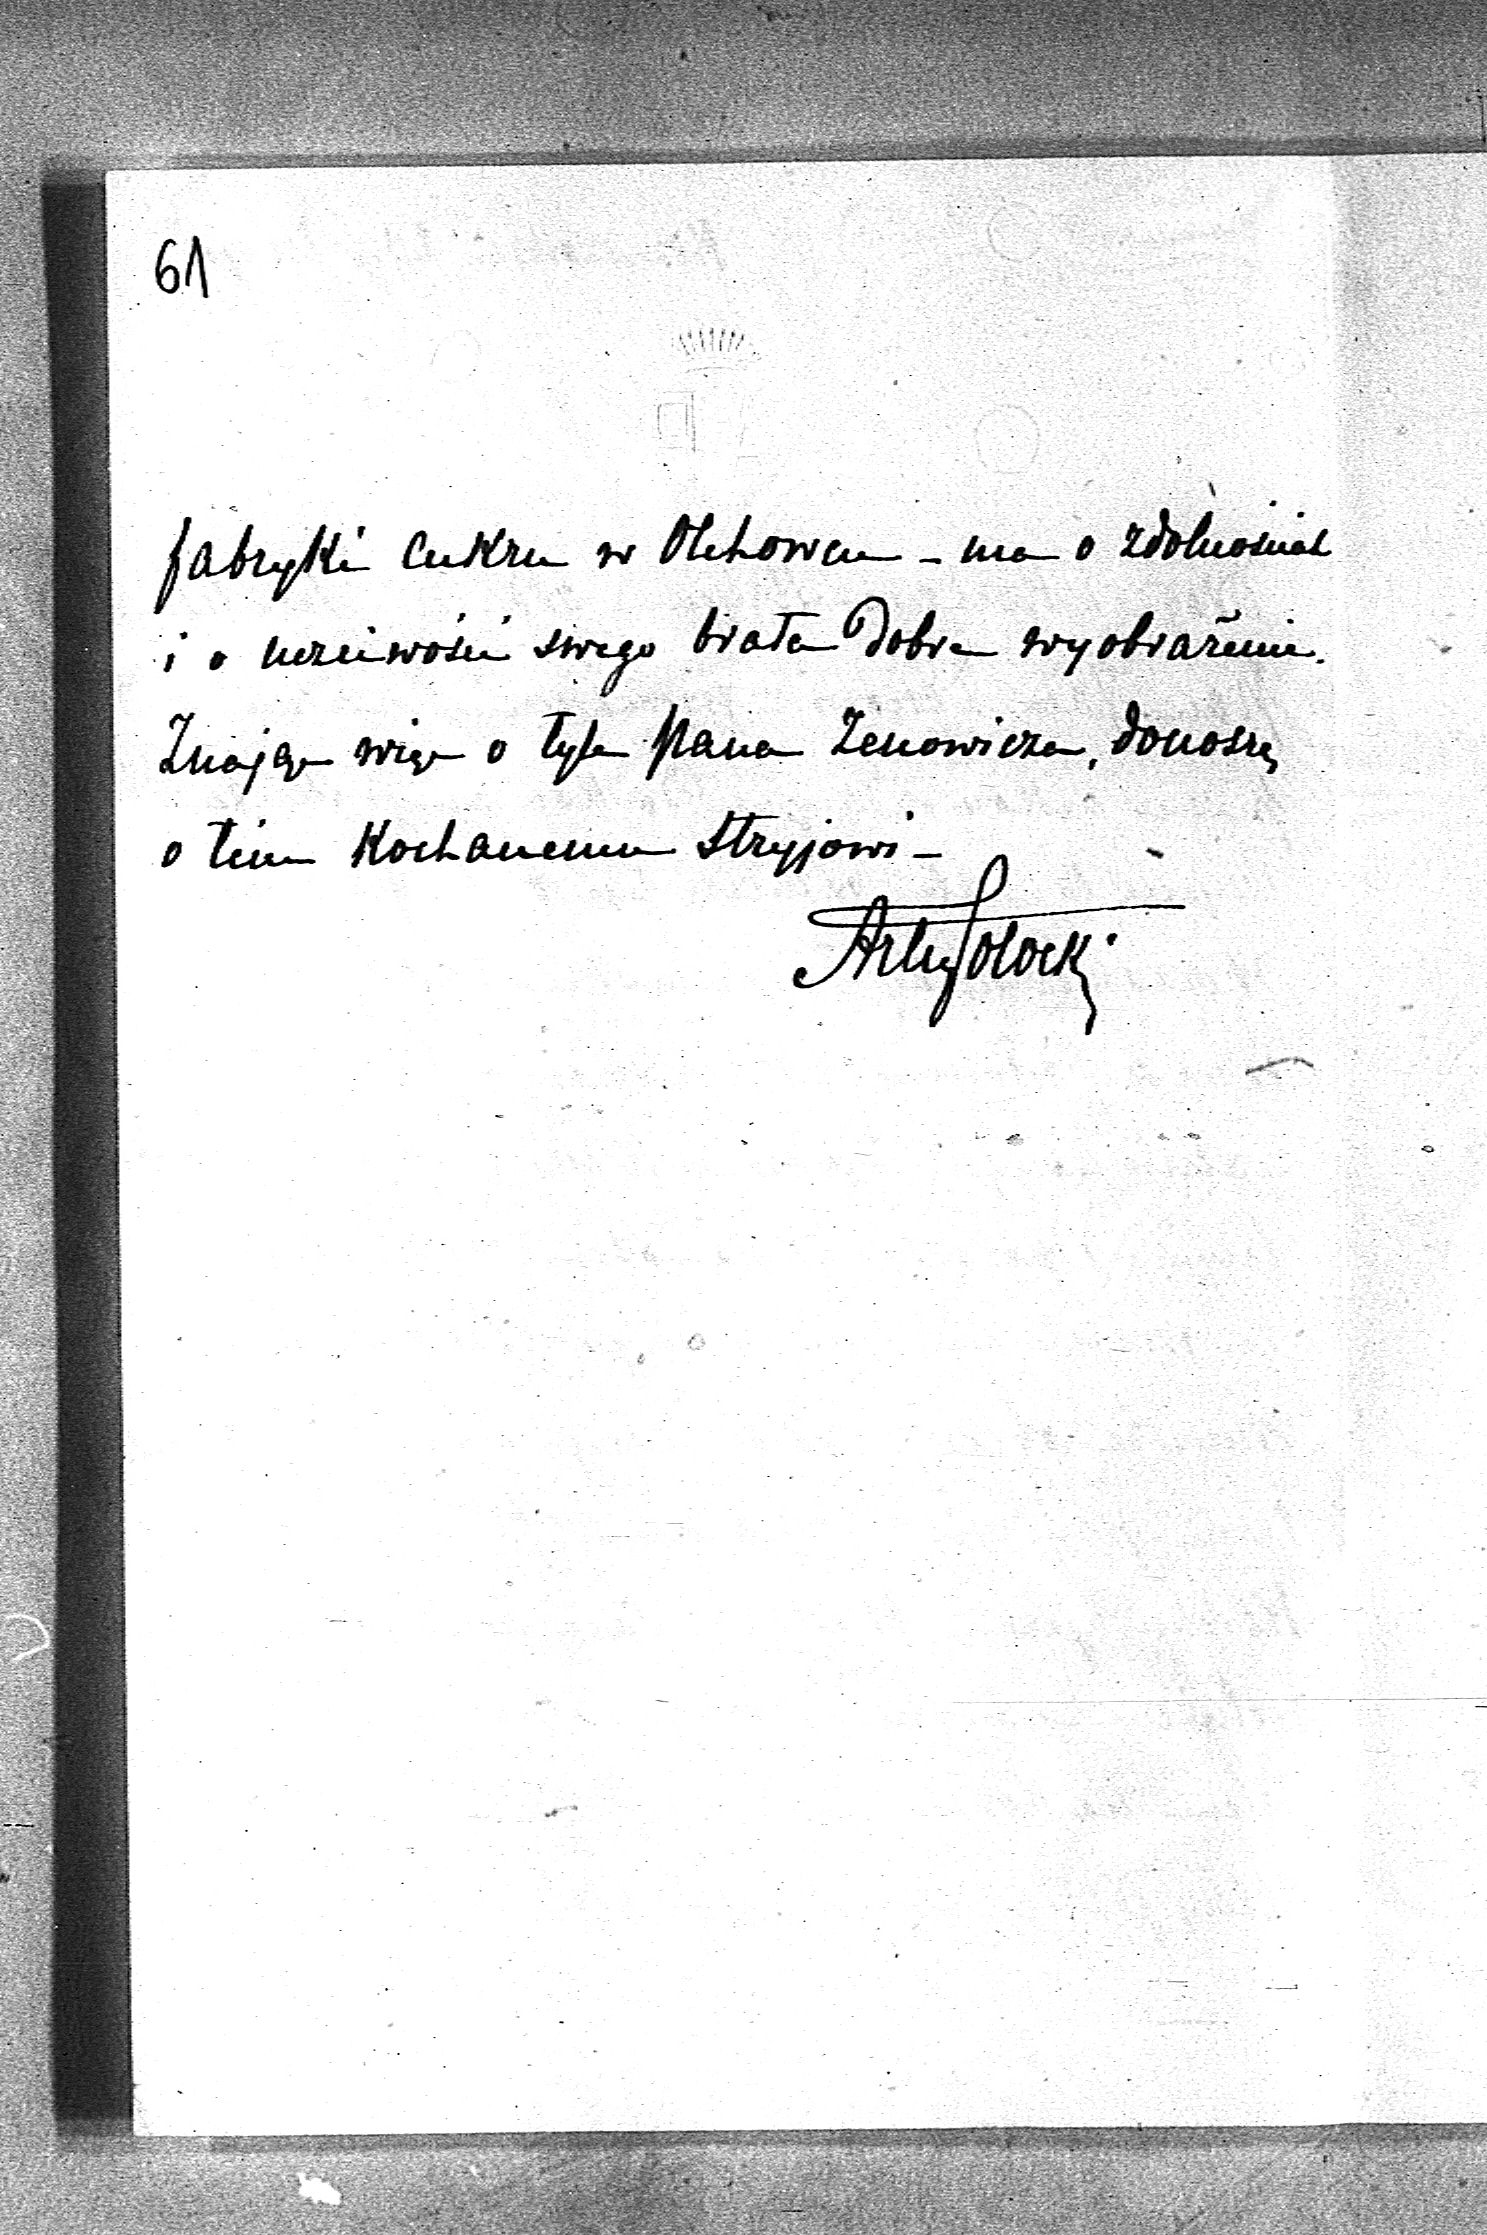 61
fabryki cukru w Olchowcu – ma o zdolnościach
i o uczciwości swego brata dobre wyobrażenie.
Znając więc o tyle Pana Zenowicza, donoszę
o tém Kochanemu Stryjowi –
ArtPotocki